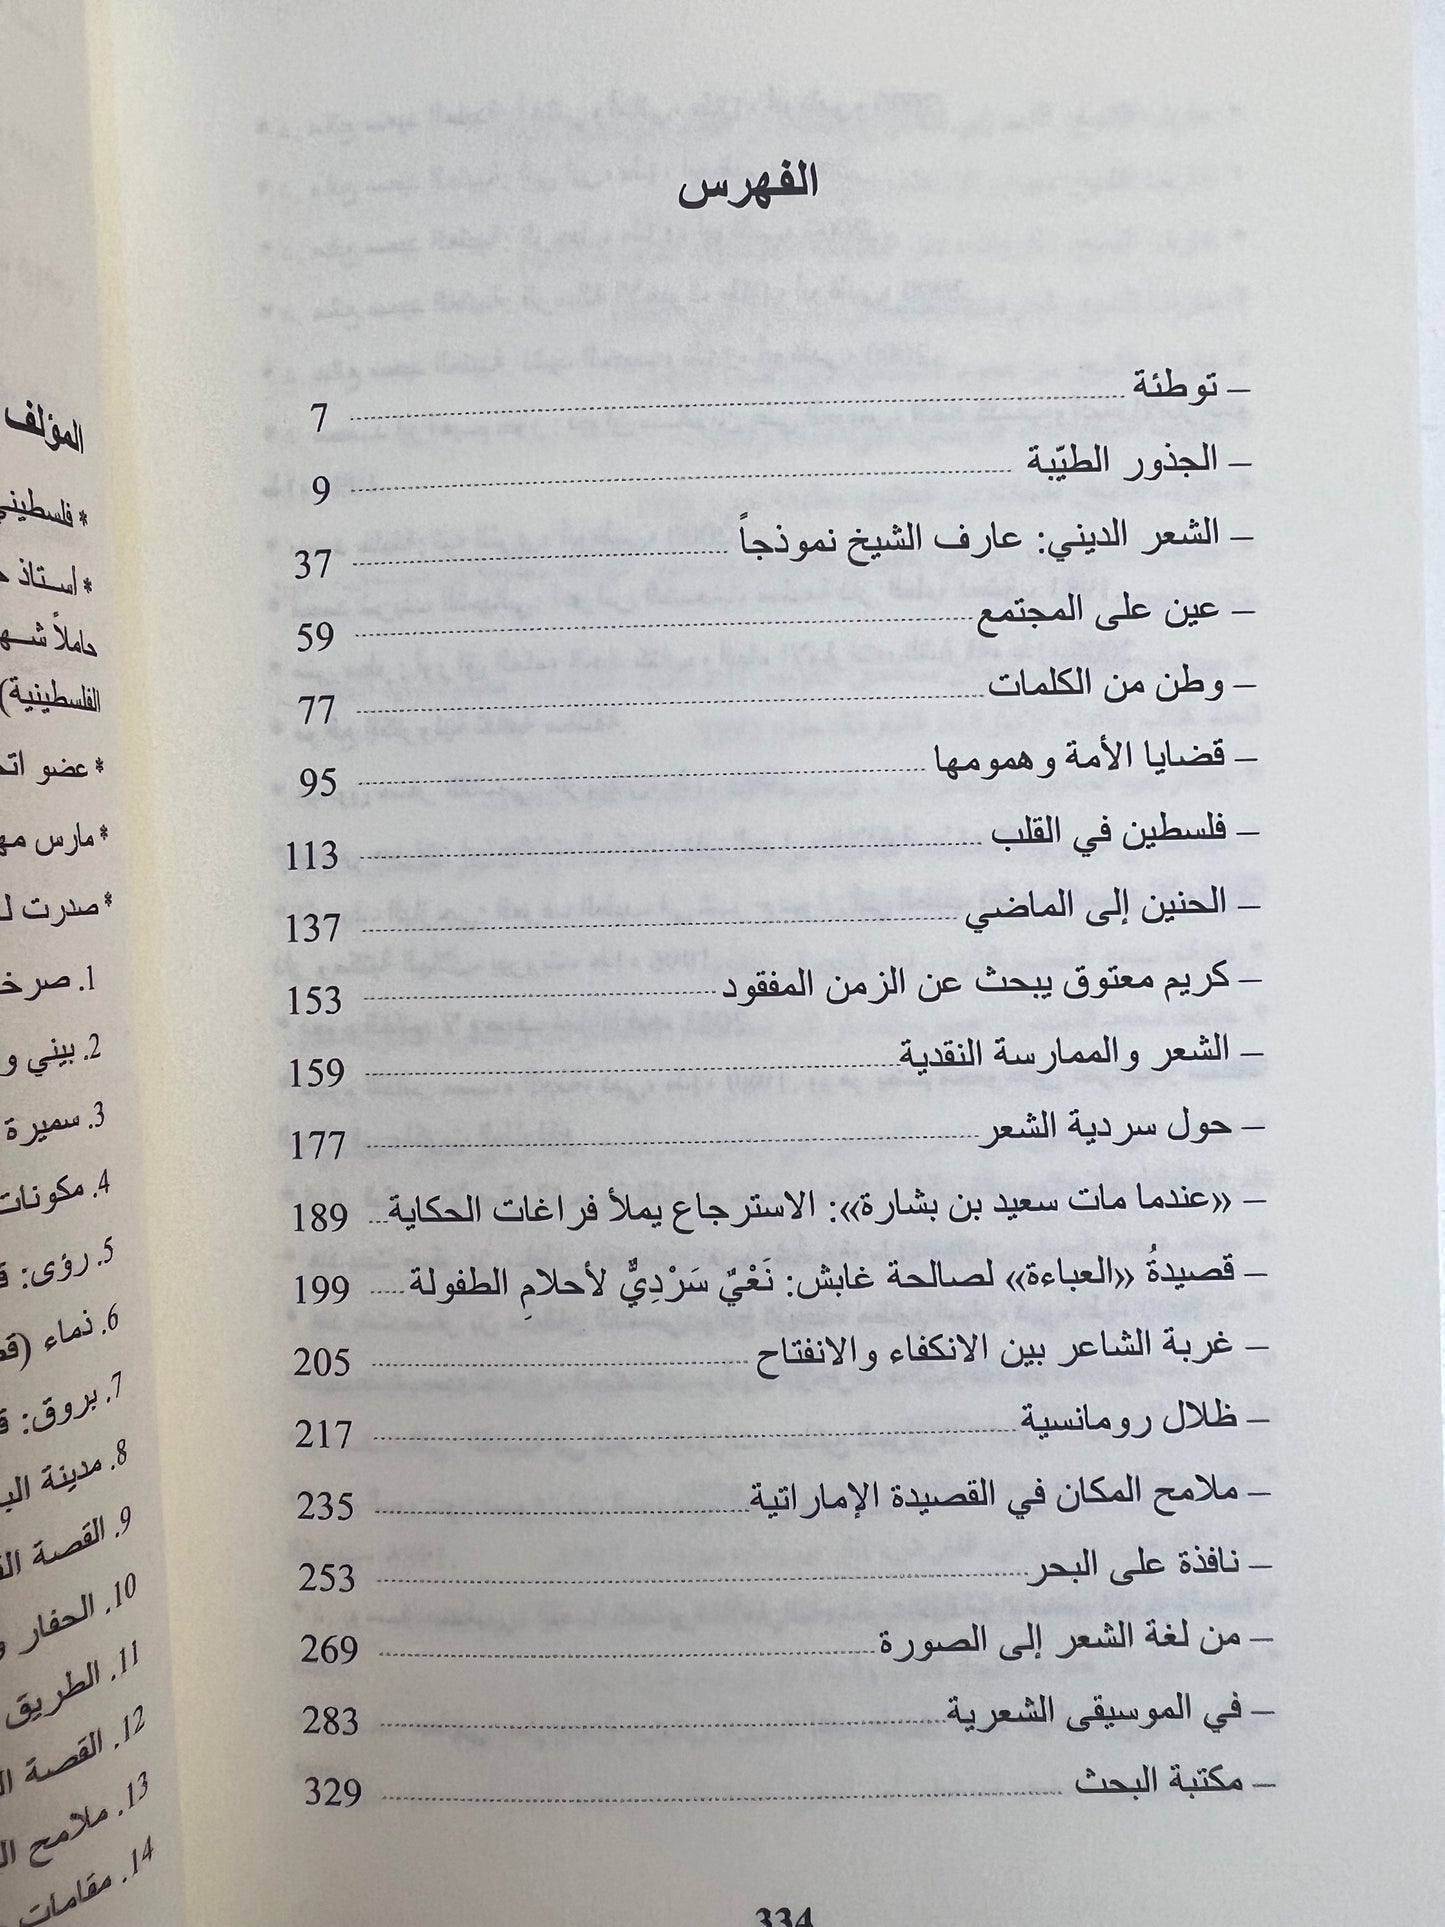 الفهرس
– توطئة ........ 7
– الجذور الطيّبة ........ 9
– الشعر الديني: عارف الشيخ نموذجاً ........ 37
– عين على المجتمع ........ 59
– وطن من الكلمات ........ 77
– قضايا الأمة وهمومها ........ 95
– فلسطين في القلب ........ 113
– الحنين إلى الماضي ........ 137
– كريم معتوق يبحث عن الزمن المفقود ........ 153
– الشعر والممارسة النقدية ........ 159
– حول سردية الشعر ........ 177
– «عندما مات سعيد بن بشارة»: الاسترجاع يملأ فراغات الحكاية ... 189
– قصيدةُ «العباءة» لصالحة غابش: نَعْيٌ سَرْدِيٌّ لأحلامِ الطفولة ..... 199
– غربة الشاعر بين الانكفاء والانفتاح ........ 205
– ظلال رومانسية ........ 217
– ملامح المكان في القصيدة الإماراتية ........ 235
– نافذة على البحر ........ 253
– من لغة الشعر إلى الصورة ........ 269
– في الموسيقى الشعرية ........ 283
– مكتبة البحث ........ 329
334
المؤلف
* فلسطيني
* أستاذ
حاملاً
الفلسطينية)
* عضو
* مارس
* صدرت
1.
2. بيني و
3. سميرة
4. مكونات
5. رؤى:
6. نماء
7. بروق:
8. مدينة
9. القصة
10. الحفار
11. الطريق
12. القصة
13. ملامح
14. مقامات